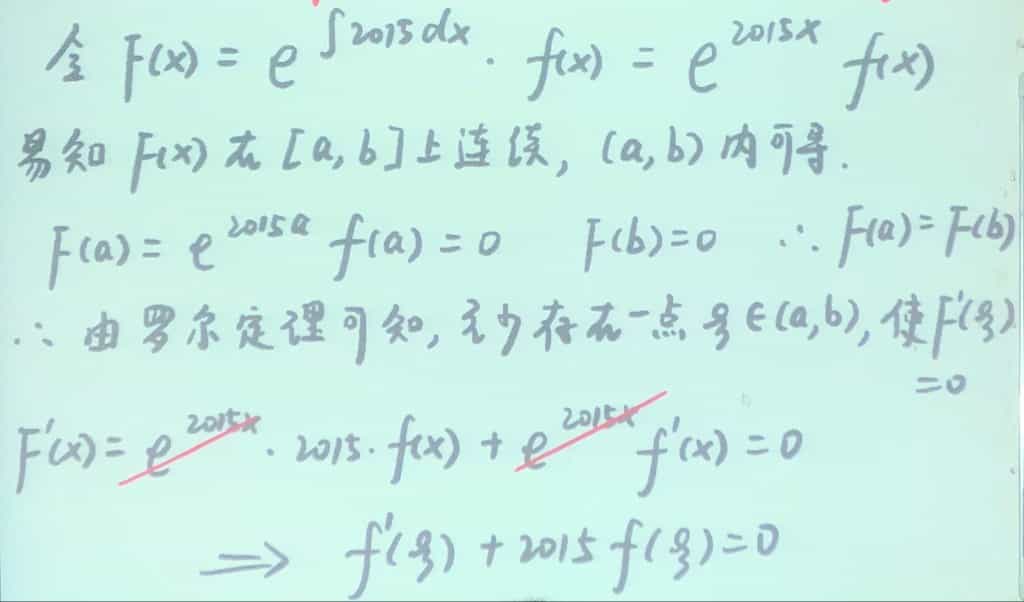 令 F(x) = e^{∫2015dx} · f(x) = e^{2015x} f(x)
易知 F(x) 在 [a,b] 上连续, (a,b) 内可导.
F(a) = e^{2015a} f(a) = 0 F(b)=0 ∴ F(a)=F(b)
∴ 由罗尔定理可知, 至少存在一点 ξ∈(a,b), 使F'(ξ)
=0
F'(x) = e^{2015x} · 2015 · f(x) + e^{2015x} f'(x) = 0
⟹ f'(ξ) + 2015 f(ξ) = 0